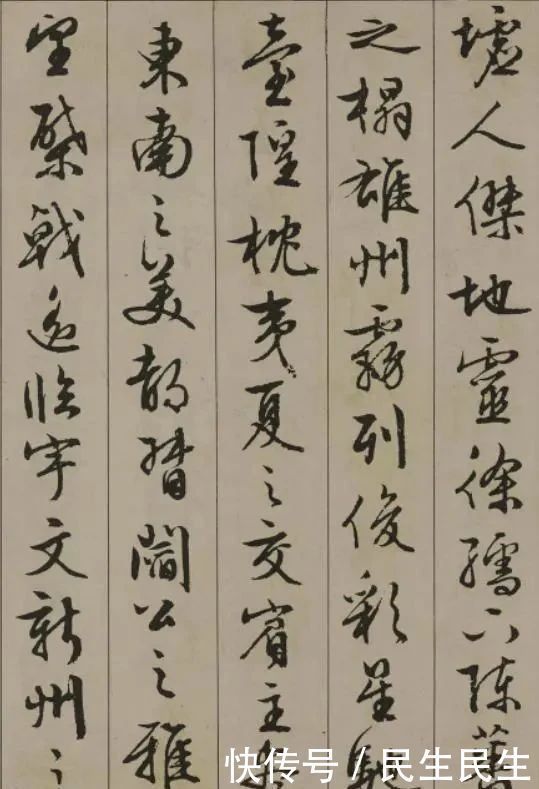 墟人傑地靈徐孺下陳蕃
之榻雄州霧列俊彩星馳
臺隍枕夷夏之交賓主盡
東南之美都督閻公之雅
望棨戟遥臨宇文新州之
快传号/民生民生